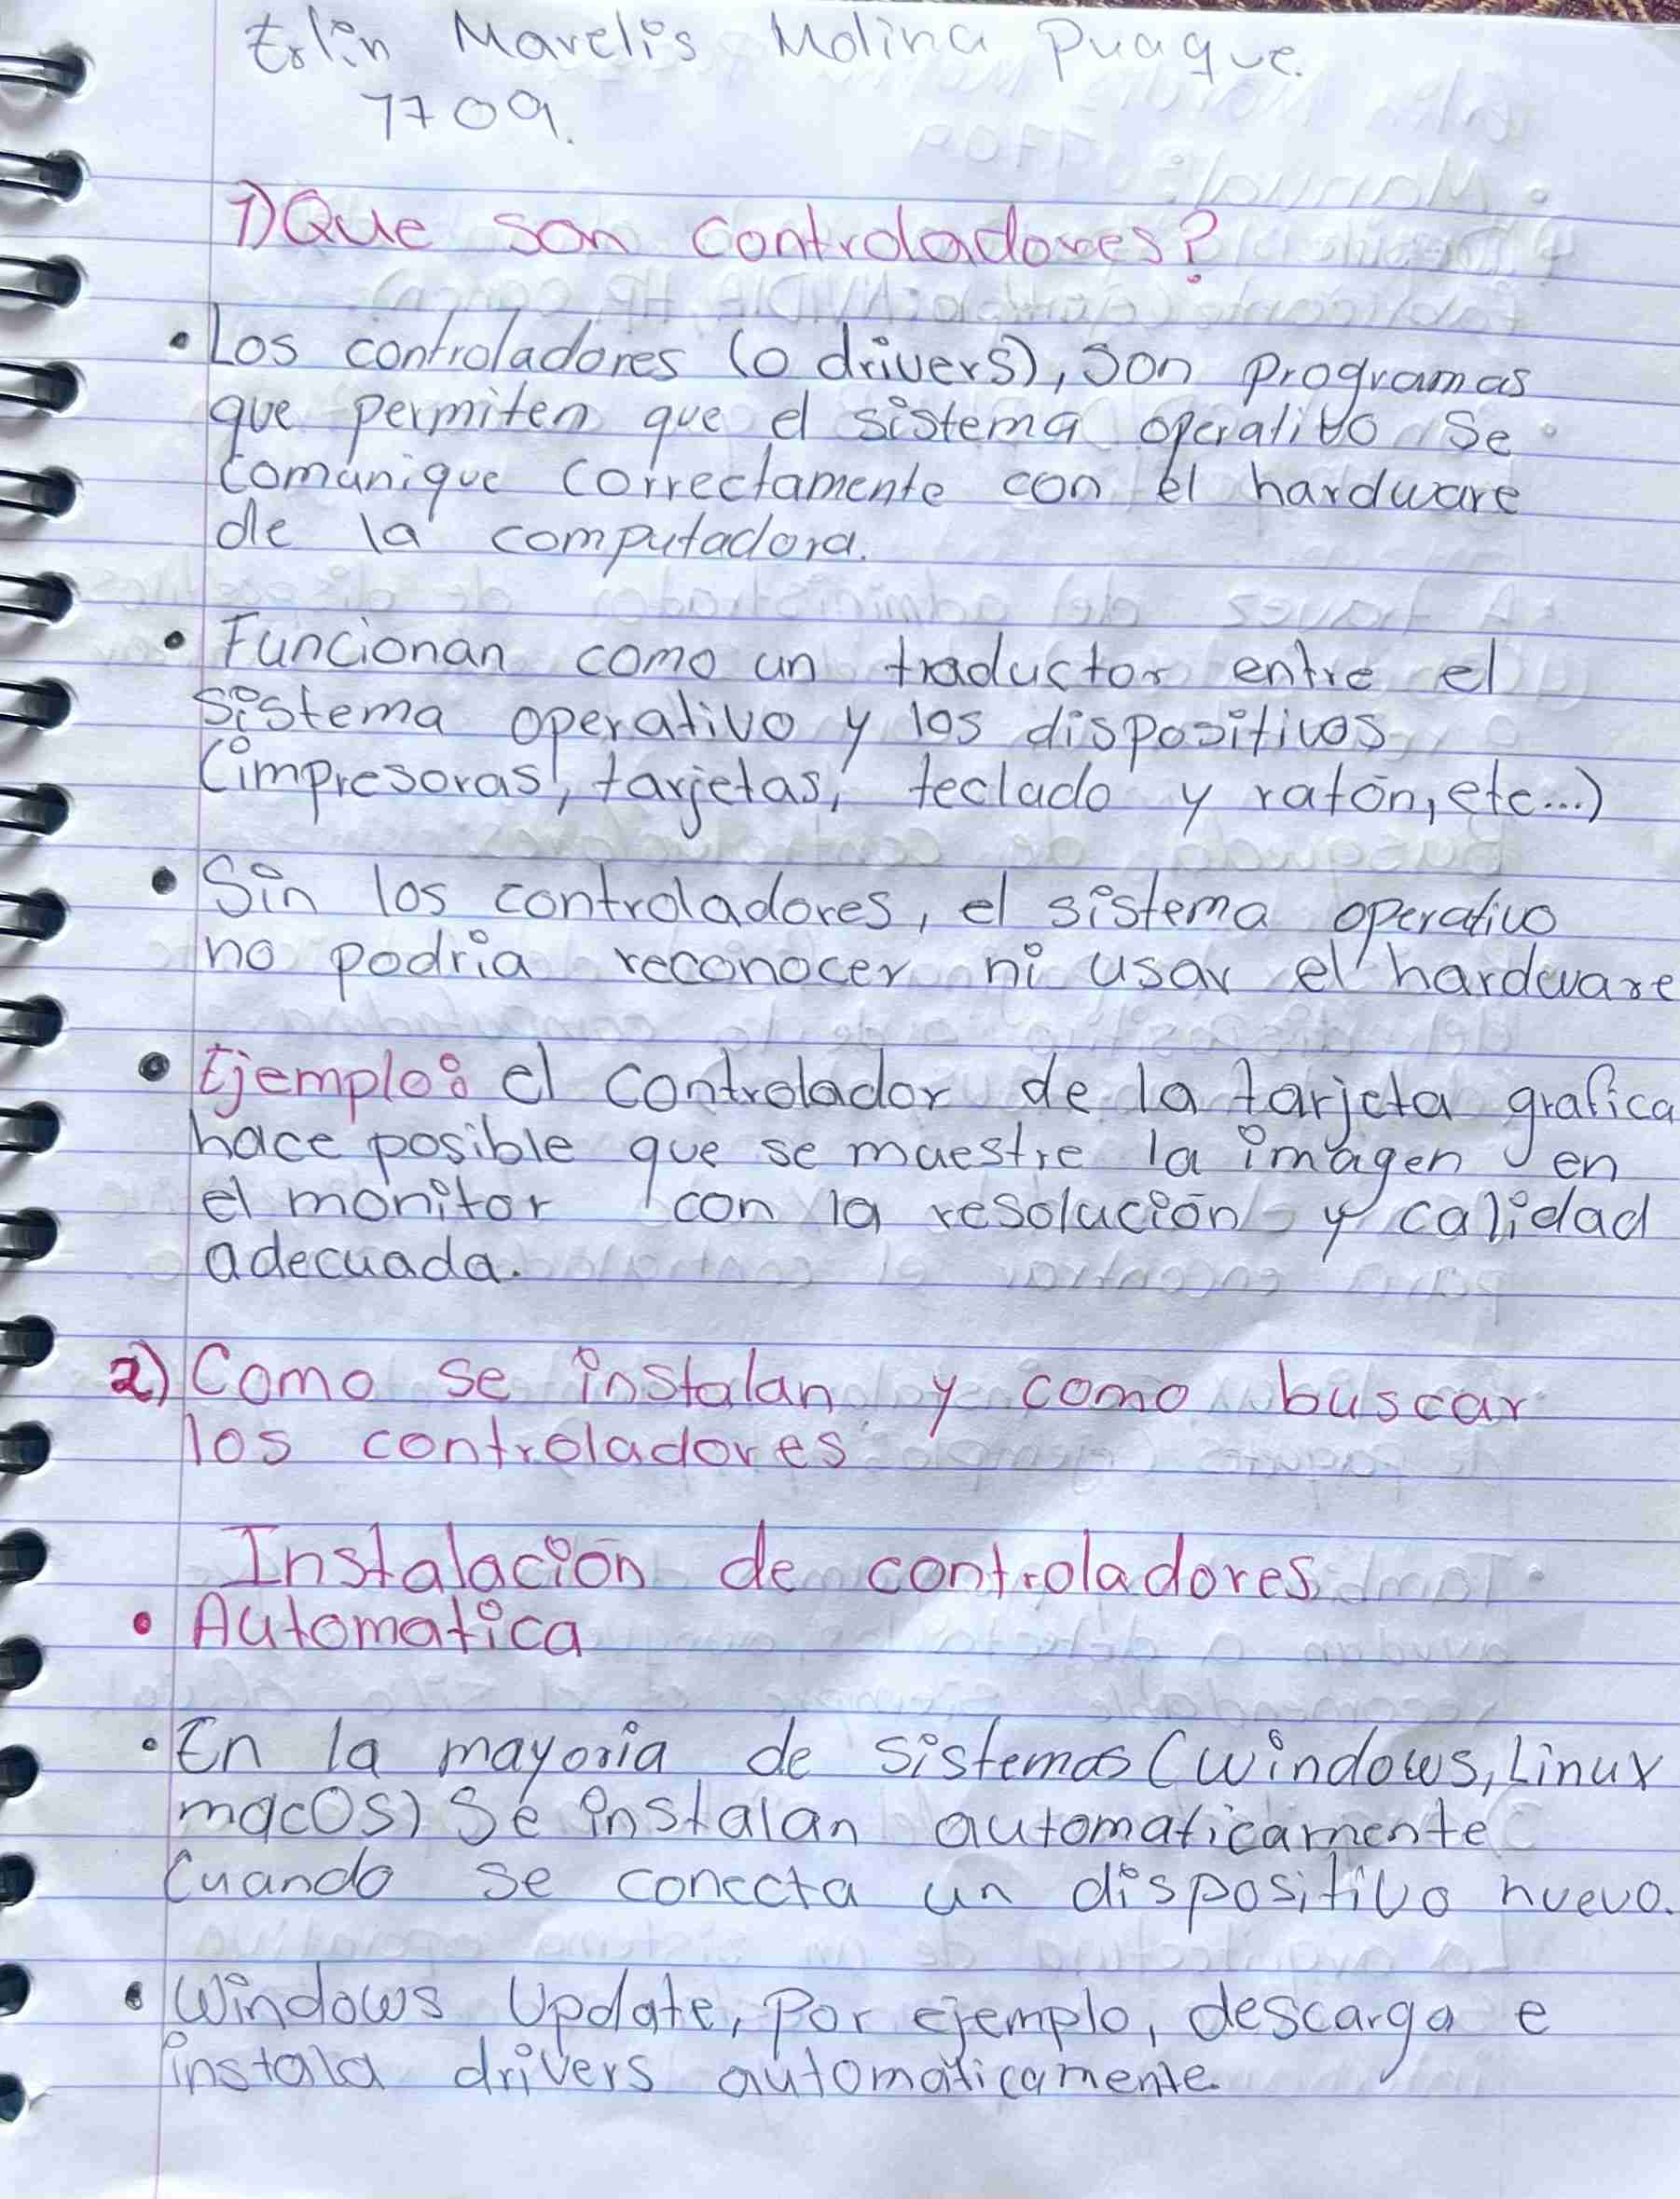 Erlin Marelis Molina Puaque.
1709.
1) Que son controladores?
• Los controladores (o drivers), son programas
que permiten que el sistema operativo se
comunique correctamente con el hardware
de la computadora.
• Funcionan como un traductor entre el
sistema operativo y los dispositivos
(impresoras, tarjetas, teclado y ratón, etc...)
• Sin los controladores, el sistema operativo
no podria reconocer ni usar el hardware
• Ejemplo: el controlador de la tarjeta grafica
hace posible que se muestre la imagen en
el monitor con la resolución y calidad
adecuada.
2) Como se instalan y como buscar
los controladores
Instalación de controladores
• Automatica
• En la mayoria de sistemas (windows, Linux
macOS) Se instalan automaticamente
Cuando se conecta un dispositivo nuevo.
• Windows Update, Por ejemplo, descarga e
instala drivers automaticamente.